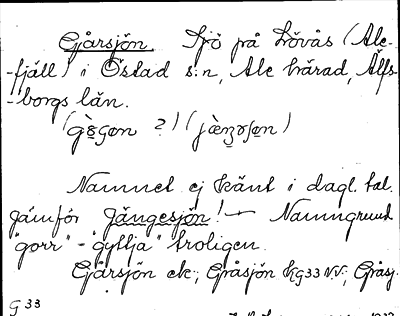 Gjårsjön. Sjö på Lövås (Ale-
-fjäll) i Östad s:n, Ale härad, Älfs-
-borgs län.
Namnet ej känt i dagl. tal.
Jämför Jängesjön! — Namngrund
"gorr" - "gyttja" troligen.
Gjärsjön ek.; Gråsjön G33 NV.; Gråsj.
G 33